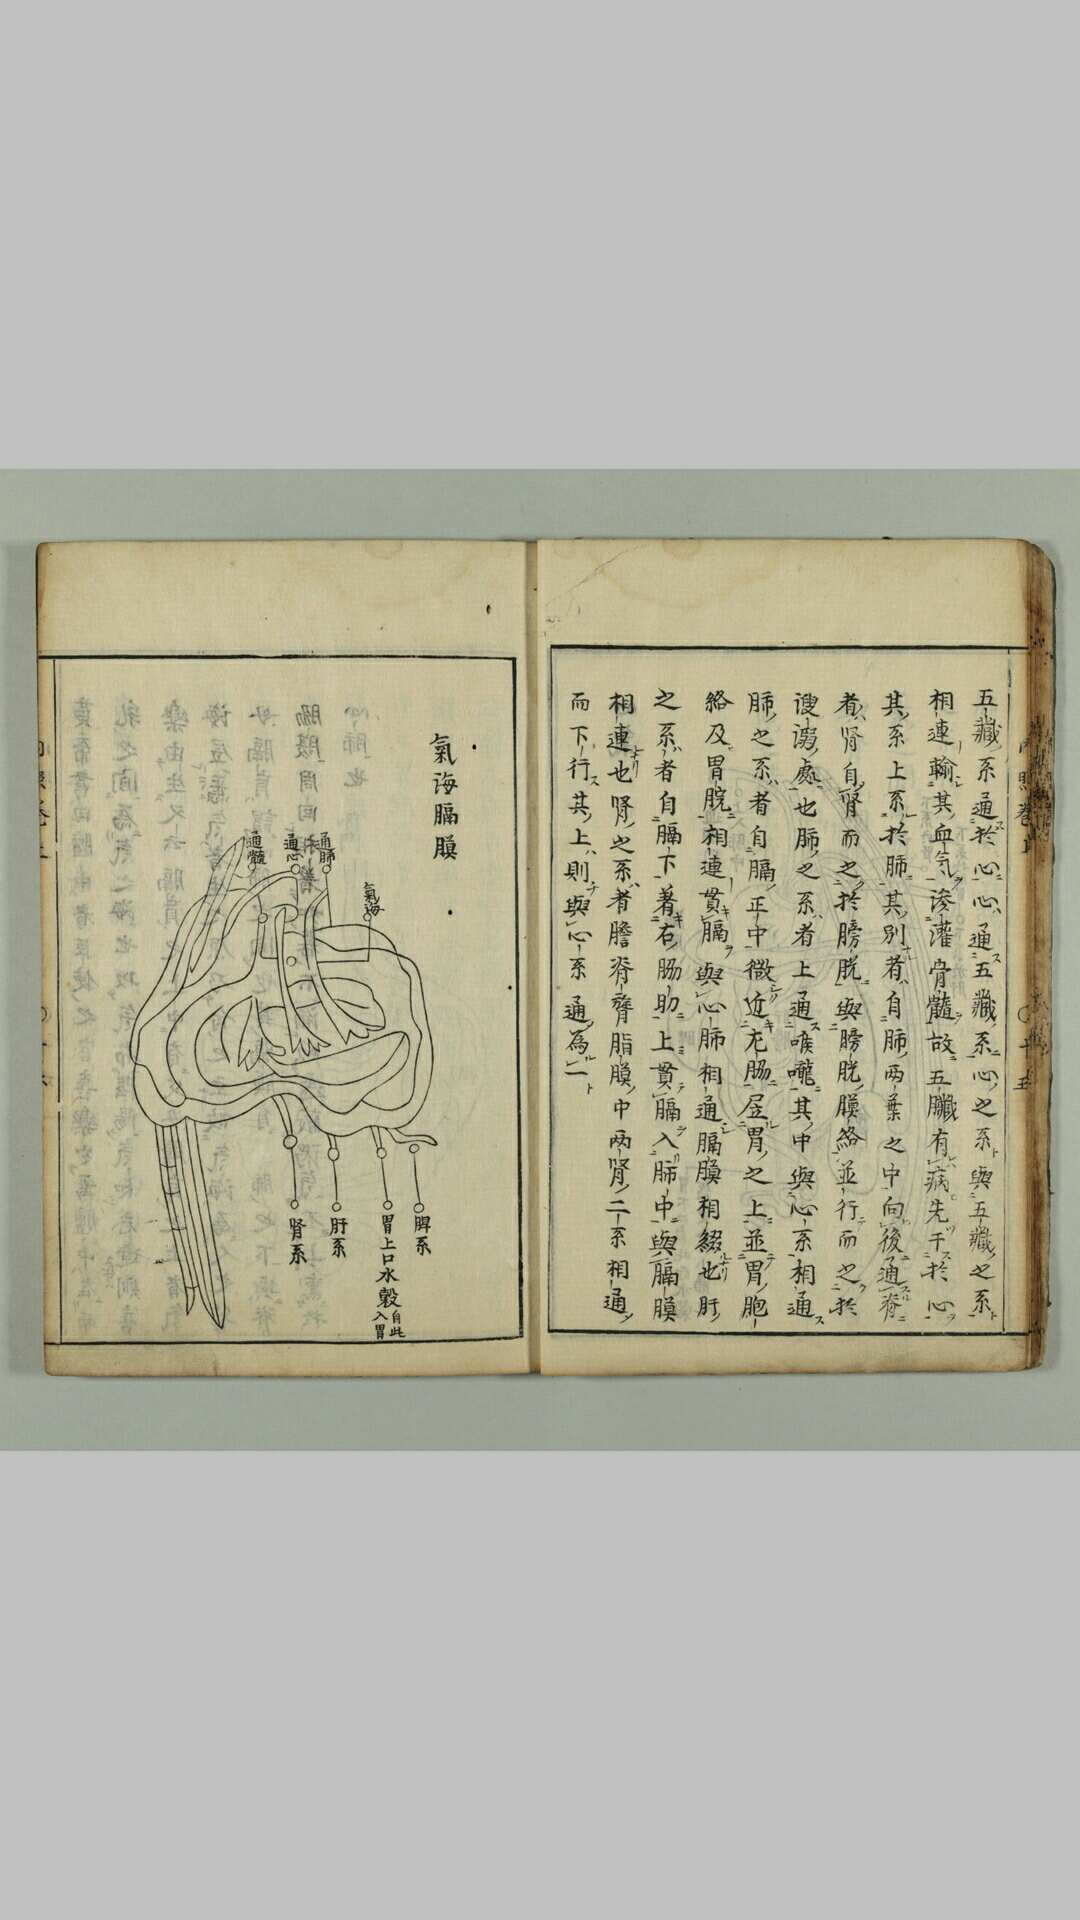 五藏系通於心心通五藏系心之系與五藏之系
相連輸其血気滲灌骨髓故五臟有病先干於心
其系上系於肺其別者自肺兩葉之中向後通脊
者腎自腎而之於膀胱與膀胱膜絡並行而之於
溲溺處也肺之系者上通喉嚨其中與心系相通
肺之系者自膈正中微近左脇居胃之上並胃胞
絡及胃脘相連貫膈與心肺相通膈膜相綴也肝
之系者自膈下著右脇肋上貫膈入肺中與膈膜
相連也腎之系者膽脊膂脂膜中兩腎二系相通
而下行其上則與心系通為一
氣海膈膜
通肺
通心
通髓
氣海
脾系
胃上口水穀自此入胃
肝系
腎系